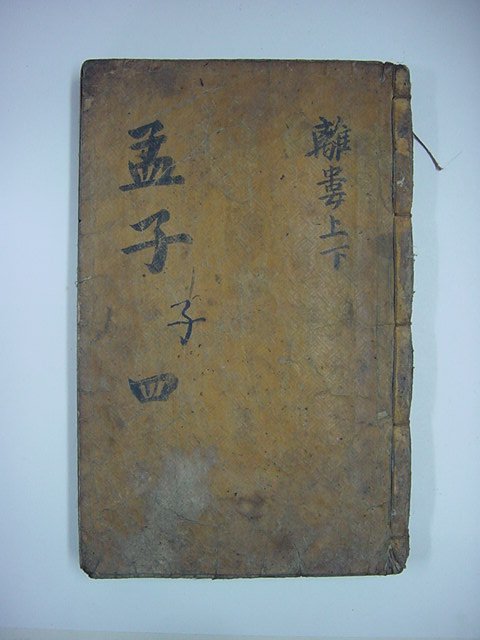 離婁上下
孟子
子
四